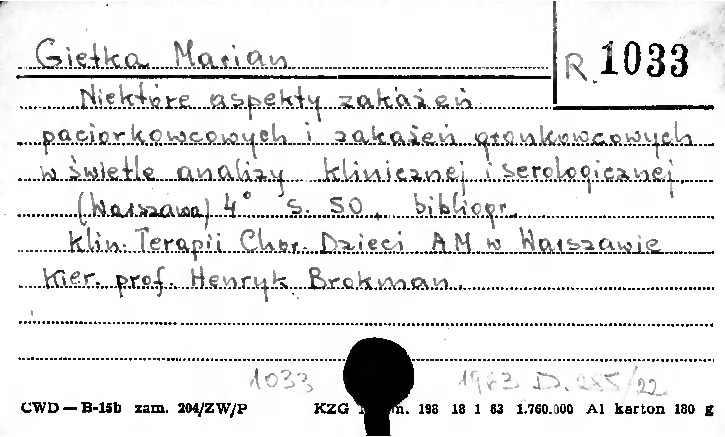 Giełka Marian
R. 1033
Niektóre aspekty zakażeń
paciorkowcowych i zakażeń gronkowcowych
w świetle analizy klinicznej i serologicznej.
(Warszawa) 4° s. 50, bibliogr.
Klin. Terapii Chor. Dzieci AM w Warszawie
Kier. prof. Henryk Brokman.
1033 1963 D. 285/22
CWD — B-15b zam. 204/ZW/P KZG m. 198 18 1 63 1.760.000 A1 karton 180 g